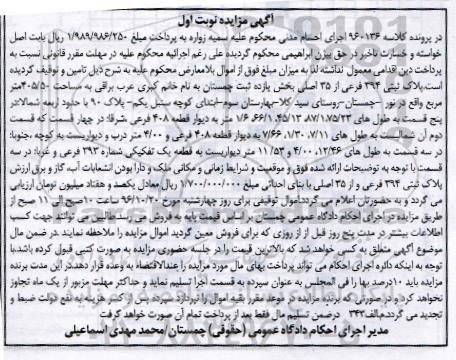 آگهی مزایده نوبت اول
در پرونده کلاسه ۹۶۰۱۳۶ اجرای احکام مدنی محکوم علیه سمیه زواره به پرداخت مبلغ ۱/۹۸۹/۹۸۶/۲۵۰ ریال بابت اصل
خواسته و خسارت تاخیر در حق بیژن ابراهیمی محکوم گردیده علی رغم اجرائیه محکوم علیه در مهلت مقرر قانونی نسبت به
پرداخت دین اقدامی معمول نداشته لذا به میزان مبلغ فوق از اموال بلامعارض محکوم علیه به شرح ذیل تامین و توقیف گردیده
است.پلاک ثبتی ۳۹۴ فرعی از ۳۵ اصلی بخش یازده ثبت چمستان به نام خانم کبری عرب براقی به مساحت ۴۰۵/۵۰متر
مربع واقع در نور -چمستان-روستای سید کلا-بهارستان سوم-ابتدای کوچه سنبل یکم- پلاک ۹۰ با حدود اربعه شمالا:در
پنج قسمت به طول های ۸۷/۱.۷۵/۲۳ ۶۶/۱.۴۵/۱۳ ۱/۶ متر به دیوار قطعه ۴۰۸ فرعی ،شرقا: در چهار قسمت که قسمت
دوم آن شمالیست به طول های ۷/۱۱، ۱/۳۰، ۷/۶۶ به دیوار قطعه ۴۰۸ فرعی و ۴/۰۰ متر درب و دیواریست به کوچه ،جنوبا:
در سه قسمت به طول های ۱۲/۴۶، ۴/۰۰ و ۱۱/۵۳ متر دیواریست به قطعه یک تفکیکی شماره ۳۹۳ فرعی و غربا: در سه
قسمت با توجه به توضیحات ارائه شده فوق و موقعیت و شرایط زمانی و مکانی ملک و دارا بودن انشعابات آب، گاز و برق ارزش
پلاک ثبتی ۳۹۴ فرعی و از ۳۵ اصلی با بنای احداثی مبلغ ۱/۷۰۰/۰۰۰/۰۰۰ ریال معادل یکصد و هفتاد میلیون تومان ارزیابی
می گردد و به حضورتان اعلام می گردد.اموال توقیفی برای روز چهارشنبه مورخ ۹۶/۱۰/۲۰ ساعت ۱۰صبح الی ۱۱ صبح از
طریق مزایده در اجرای احکام دادگاه عمومی چمستان بر اساس قیمت پایه به فروش می رسد.طالبین می توانند جهت کسب
اطلاعات بیشتر در مدت پنج روز قبل از از روزی که برای فروش معین گردید اموال مزایده را ملاحظه نمایند .در ضمن مال
موضوع آگهی متعلق به کسی خواهد شد که بالاترین قیمت را در جلسه حضوری مزایده به صورت کتبی قبول کرده باشد.با
توجه به اینکه دائره اجرای احکام می تواند پرداخت بهای مال مورد مزایده را عندالاقتضاء به وعده قرار دهد.در این مدت برنده
مزایده باید ۱۰درصد بها را فی المجلس به عنوان سپرده به قسمت اجرا تسلیم نماید و حداکثر مهلت مزبور از یک ماه تجاوز
نخواهد کرد و در صورتی که برنده مزایده در موعد مقرر بقیه اموال را نپردازد سپرده پس از کسر هزینه به نفع دولت ضبط و
تجدید می گردد.م/الف ۳۴۲ درضمن تسلیم مال فقط بعد از پرداخت تمام آن صورت خواهد گرفت
مدیر اجرای احکام دادگاه عمومی (حقوقی) چمستان/ محمد مهدی اسماعیلی